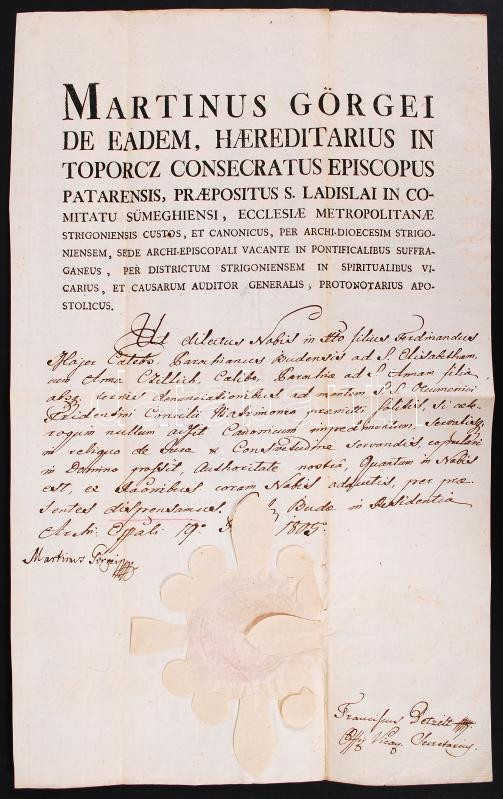 MARTINUS GÖRGEI
DE EADEM, HÆREDITARIUS IN
TOPORCZ CONSECRATUS EPISCOPUS
PATARENSIS, PRÆPOSITUS S. LADISLAI IN CO-
MITATU SÜMEGHIENSI, ECCLESIÆ METROPOLITANÆ
STRIGONIENSIS CUSTOS, ET CANONICUS, PER ARCHI-DIOECESIM STRIGO-
NIENSEM, SEDE ARCHI-EPISCOPALI VACANTE IN PONTIFICALIBUS SUFFRA-
GANEUS, PER DISTRICTUM STRIGONIENSEM IN SPIRITUALIBUS VI-
CARIUS, ET CAUSARUM AUDITOR GENERALIS, PROTONOTARIUS APO-
STOLICUS.
Ut dilectus Nobis in filius Ferdinandus
Majer Caelebs, Parochianus Budensis ad S. Elisabetham,
cum Anna Czellich, Caelibe, Parochiae ad S. Annam filia
absq ternis denunciationibus ad mentem S. S. Oecumenici
Tridentini Concilii Matrimonio praemitti solitis, si caete-
roquin nullum adsit Canonicum impedimentum, servatisq
in reliquo de Jure & Consvetudine servandis, copulari
in Domino possit, Authoritate nostra, Quantum in Nobis
est, ex rationibus coram Nobis adductis, per prae
sentes dispensamus. Budae in Residentia
Archi Eppali 19a 1805.
Martinus Görgei
Franciscus Petzelt
Offi Vicar Secretarius